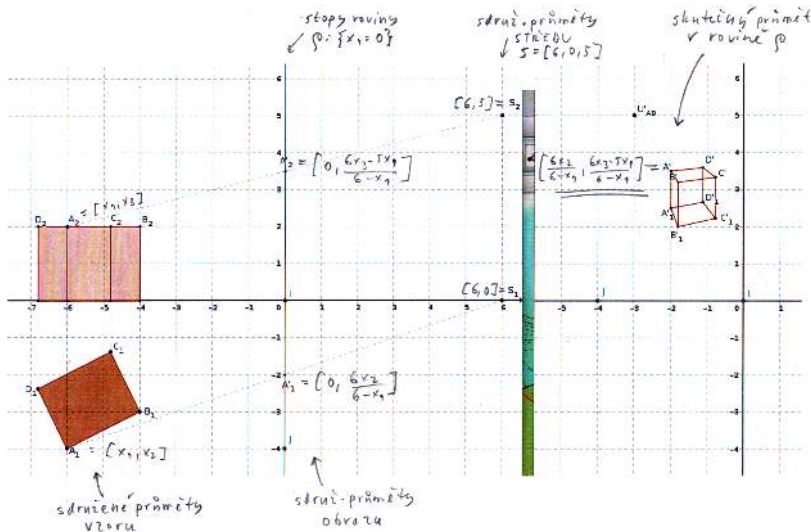 stopy roviny
ρ: {x₁ = 0}
sdruž. průměty
STŘEDU
S = [6,0,5]
skutečný průmět
v rovině ρ
[6,5] = S₂
U'AD
A'₂ = [0, 6x₃-5x₁ / 6-x₁]
[6x₂ / 6-x₁, 6x₃-5x₁ / 6-x₁] =
A' D'
B' C'
A'₁ D'₁
B'₁ C'₁
= [x₁, x₃]
D₂ A₂ C₂ B₂
[6,0] = S₁
A'₁ = [0, 6x₂ / 6-x₁]
C₁
D₁
B₁
A₁ = [x₁, x₂]
sdružené průměty
vzoru
sdruž. průměty
obrazu
6
5
4
3
2
1
0
-1
-2
-3
-4
-7 -6 -5 -4 -3 -2 -1 0 1 2 3 4 5 6
6
5
4
3
2
1
0
-1
-2
-3
-4
-5 -4 -3 -2 -1 0 1